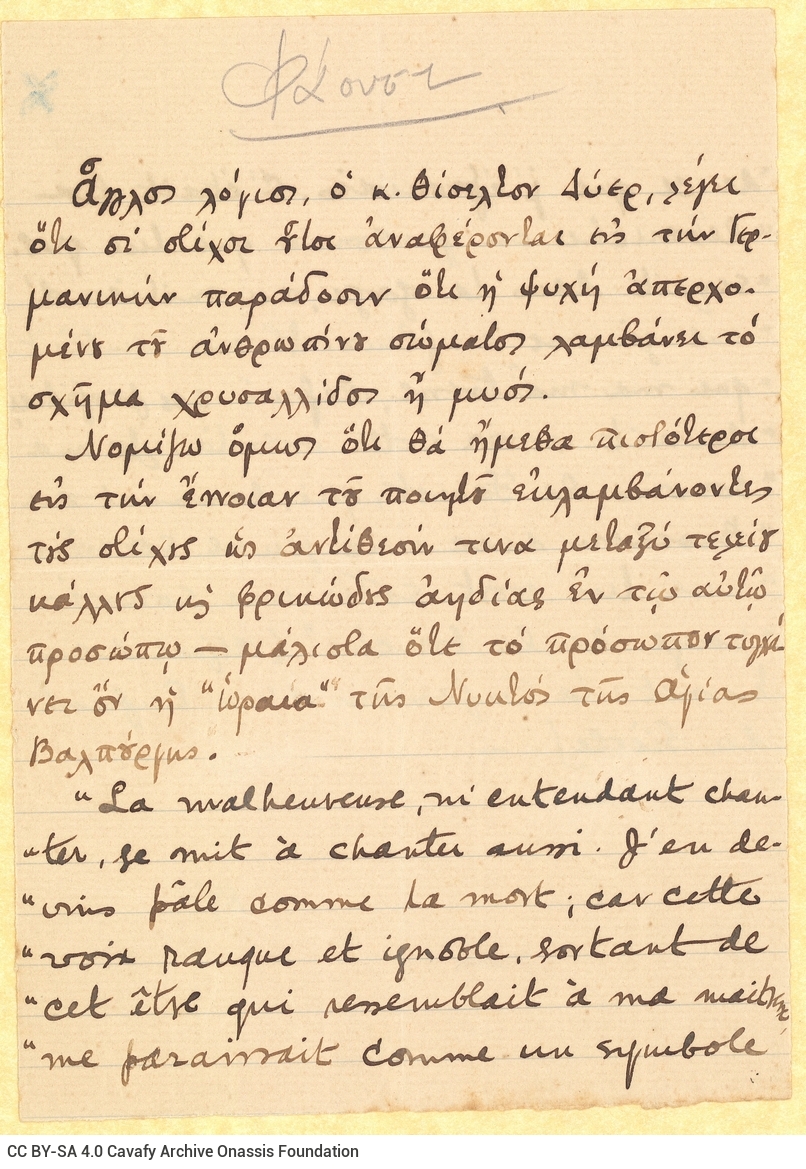 Φάουστ
Ἄλλος λόγιος, ὁ κ. Θίσελτον Δύερ, λέγει
ὅτι οἱ στίχοι οὗτοι ἀναφέρονται εἰς τὴν Γερ-
μανικὴν παράδοσιν ὅτι ἡ ψυχὴ ἀπερχο-
μένη τοῦ ἀνθρωπίνου σώματος λαμβάνει τὸ
σχῆμα χρυσαλλίδος ἢ μυός.
Νομίζω ὅμως ὅτι θὰ ἤμεθα πιστότεροι
εἰς τὴν ἔννοιαν τοῦ ποιητοῦ ἐκλαμβάνοντες
τοὺς στίχους ὡς ἀντίθεσίν τινα μεταξὺ τελείου
κάλλους καὶ φρικώδους ἀηδίας ἐν τῷ αὐτῷ
προσώπῳ — μάλιστα ὅτε τὸ πρόσωπον τυγχά-
νει ὂν ἡ "ὡραία" τῆς Νυκτὸς τῆς Ἁγίας
Βαλπούργης.
"La malheureuse, m'entendant chan-
"ter, se mit à chanter aussi. J'en de-
"vins pâle comme la mort; car cette
"voix rauque et ignoble, sortant de
"cet être qui ressemblait à ma maitresse,
"me paraissait comme un symbole
CC BY-SA 4.0 Cavafy Archive Onassis Foundation